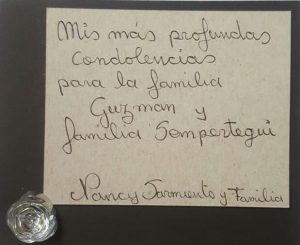 Mis más profundas
condolencias
para la familia
Guzman y
familia Sempertegui
Nancy Sarmiento y Familia